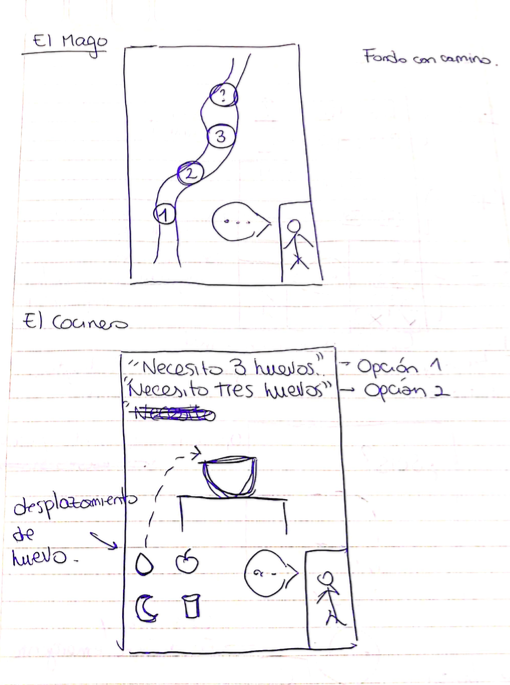 El Mago
Fondo con camino.
?
3
2
1
...
El Cocinero
"Necesito 3 huevos" → Opción 1
"Necesito tres huevos" → Opción 2
desplazamiento
de
huevo.
...